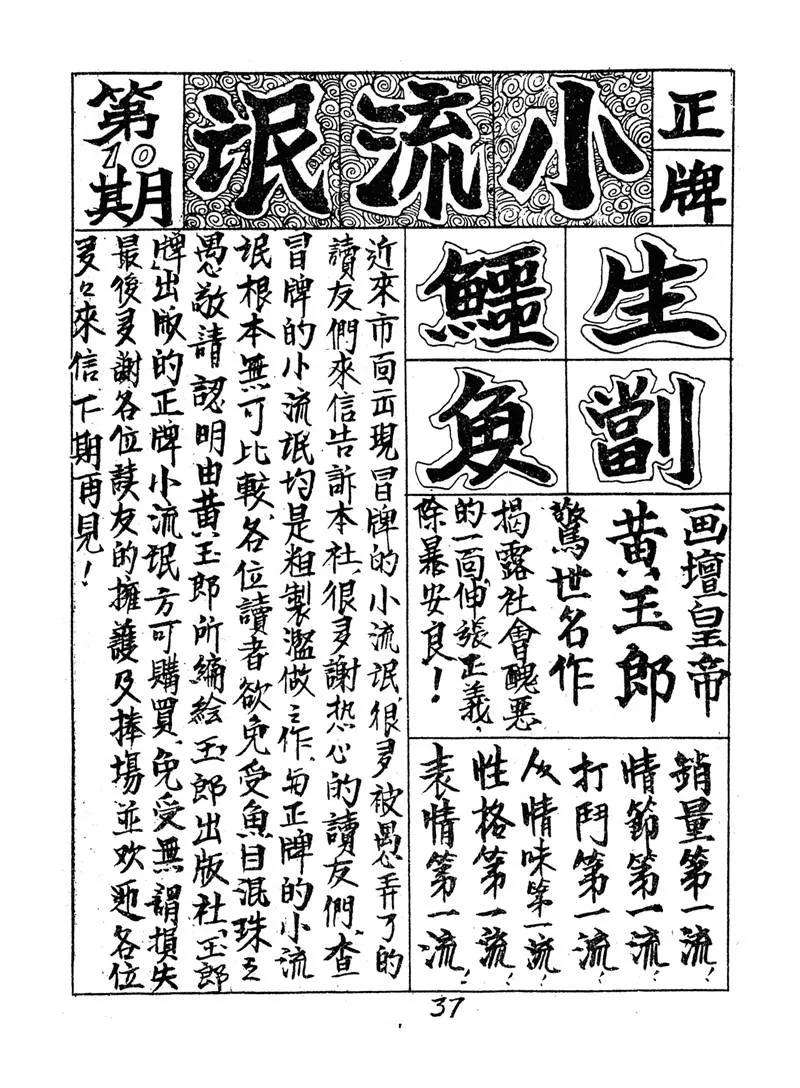 正牌
小流氓
第10期
生劏
鱷魚
画壇皇帝
黃玉郎
驚世名作
揭露社會醜惡
的一面,伸張正義,
除暴安良!
銷量第一流!
情節第一流!
打鬥第一流!
人情味第一流!
性格第一流!
表情第一流!
近來市面出現冒牌的小流氓,很多被愚弄了的
讀友們來信告訴本社,很多謝热心的讀友們,查
冒牌的小流氓均是粗製濫做之作,与正牌的小流
氓根本無可比較,各位讀者欲免受魚目混珠之
愚,敬請認明由黃玉郎所編絵玉郎出版社,玉郎
牌出版的正牌小流氓方可購買,免受無謂損失
最後多謝各位讀友的擁護及捧場並欢迎各位
多々來信下期再見!
37